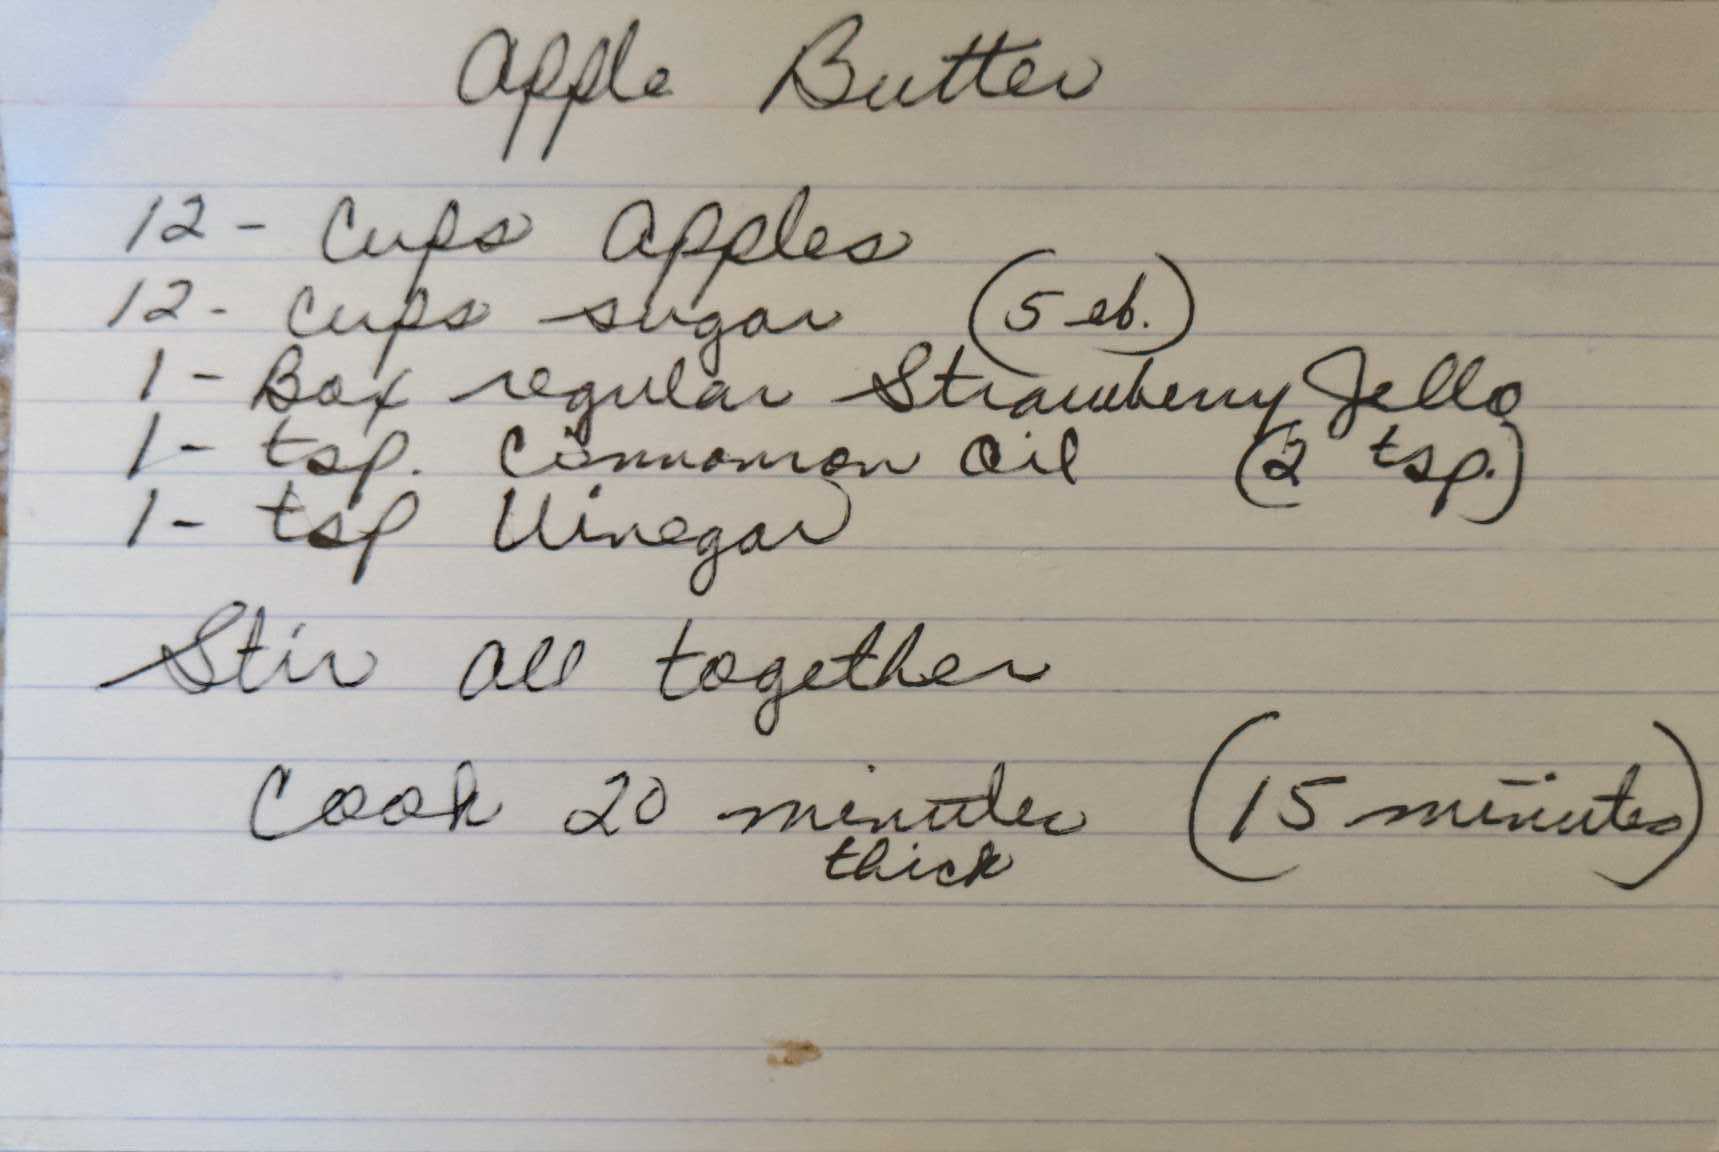 Apple Butter
12 - Cups Apples
12 - Cups sugar (5 lb.)
1 - Box regular Strawberry Jello
1 - tsp. Cinnamon Oil (2 tsp.)
1 - tsp Vinegar
Stir all together
Cook 20 minutes (15 minutes)
thick